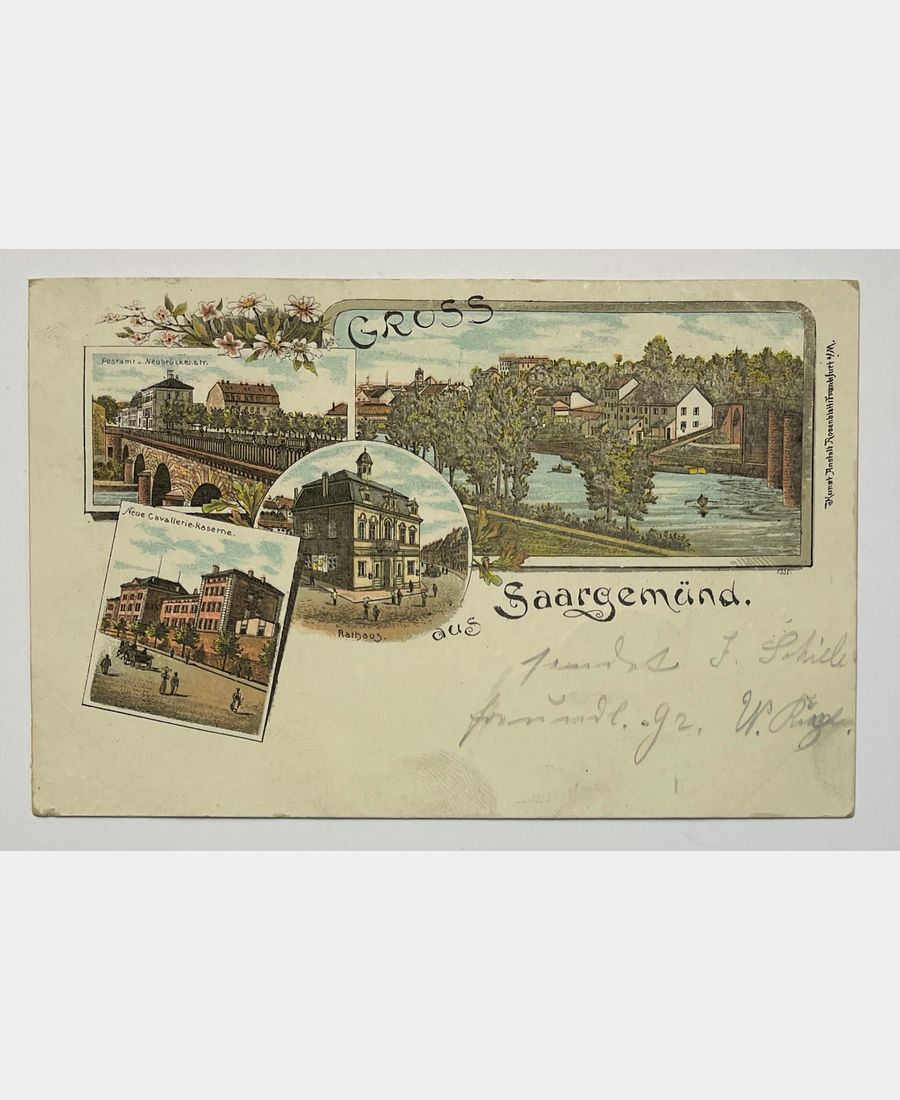 GRUSS
aus
Saargemünd.
Postamt u. Neubrückenstr.
Neue Cavallerie-Kaserne.
Rathaus.
Kunst Anstalt Rosenblatt Frankfurt a/M.
1331.
sendet J.
freundl. Gr. W.